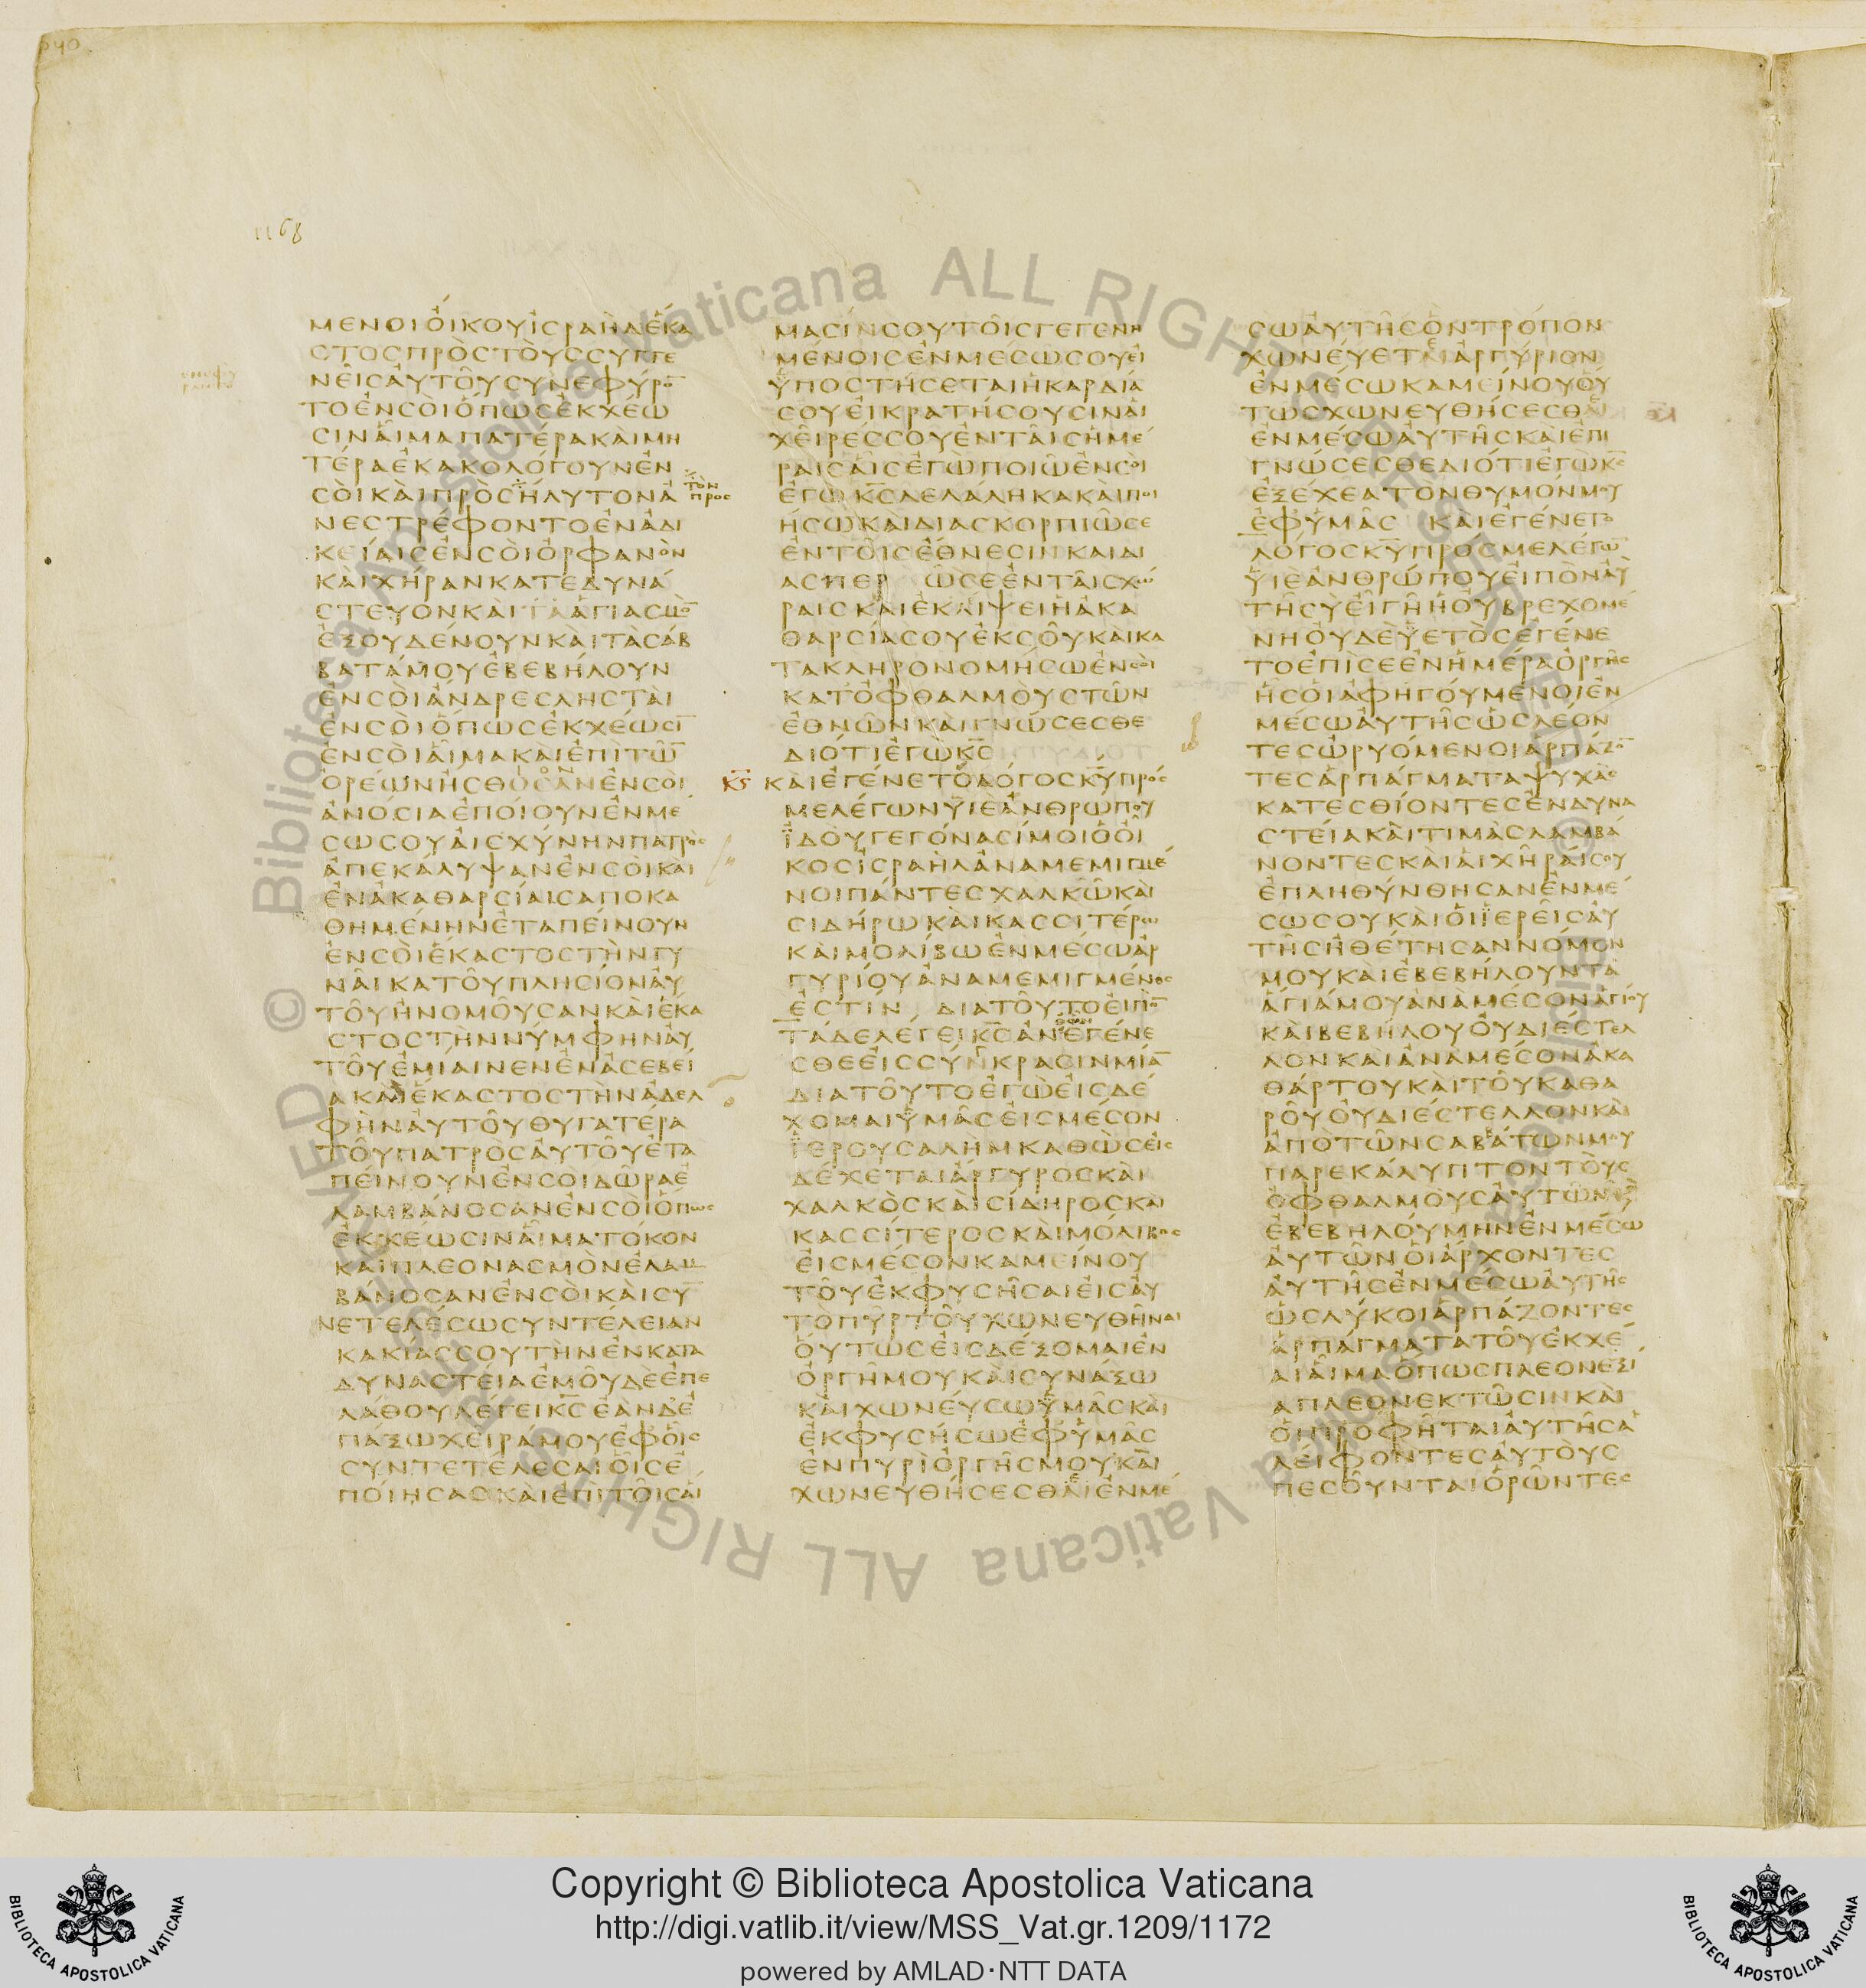 1168
ΜΕΝΟΙΟΙΚΟΥΙΣΡΑΗΛΕΚΑ
ΣΤΟΣΠΡΟΣΤΟΥΣΣΥΓΓΕ
ΝΕΙΣΑΥΤΟΥΣΥΝΕΦΥΡΟ̅
ΤΟΕΝΣΟΙΟΠΩΣΕΚΧΕΩ
ΣΙΝΑΙΜΑΠΑΤΕΡΑΚΑΙΜΗ
ΤΕΡΑΕΚΑΚΟΛΟΓΟΥΝΕΝ
ΣΟΙΚΑΙΠΡΟΣΗΛΥΤΟΝΑ
ΝΕΣΤΡΕΦΟΝΤΟΕΝΑΔΙ
ΚΕΙΑΙΣΕΝΣΟΙΟΡΦΑΝΟΝ
ΚΑΙΧΗΡΑΝΚΑΤΕΔΥΝΑ
ΣΤΕΥΟΝΚΑΙΤΑΑΓΙΑΣΜΟ̅
ΕΞΟΥΔΕΝΟΥΝΚΑΙΤΑΣΑΒ
ΒΑΤΑΜΟΥΕΒΕΒΗΛΟΥΝ
ΕΝΣΟΙΑΝΔΡΕΣΛΗΣΤΑΙ
ΕΝΣΟΙΟΠΩΣΕΚΧΕΩΣΙ̅
ΕΝΣΟΙΑΙΜΑΚΑΙΕΠΙΤΩ̅
ΟΡΕΩΝΗΣΘΟΣΑΝΕΝΣΟΙ
ΑΝΟΣΙΑΕΠΟΙΟΥΝΕΝΜΕ
ΣΩΣΟΥΑΙΣΧΥΝΗΝΠΑΤΡΟΣ
ΑΠΕΚΑΛΥΨΑΝΕΝΣΟΙΚΑΙ
ΕΝΑΚΑΘΑΡΣΙΑΙΣΑΠΟΚΑ
ΘΗΜΕΝΗΝΕΤΑΠΕΙΝΟΥΝ
ΕΝΣΟΙΕΚΑΣΤΟΣΤΗΝΓΥ
ΝΑΙΚΑΤΟΥΠΛΗΣΙΟΝΑΥ
ΤΟΥΗΝΟΜΟΥΣΑΝΚΑΙΕΚΑ
ΣΤΟΣΤΗΝΝΥΜΦΗΝΑΥ
ΤΟΥΕΜΙΑΙΝΕΝΕΝΑΣΕΒΕΙ
ΑΚΑΙΕΚΑΣΤΟΣΤΗΝΑΔΕΛ
ΦΗΝΑΥΤΟΥΘΥΓΑΤΕΡΑ
ΤΟΥΠΑΤΡΟΣΑΥΤΟΥΕΤΑ
ΠΕΙΝΟΥΝΕΝΣΟΙΔΩΡΑΕ
ΛΑΜΒΑΝΟΣΑΝΕΝΣΟΙΟΠΩΣ
ΕΚΧΕΩΣΙΝΑΙΜΑΤΟΚΟΝ
ΚΑΙΠΛΕΟΝΑΣΜΟΝΕΛΑΜ
ΒΑΝΟΣΑΝΕΝΣΟΙΚΑΙΣΥ̅
ΝΕΤΕΛΕΣΩΣΥΝΤΕΛΕΙΑΝ
ΚΑΚΙΑΣΣΟΥΤΗΝΕΝΚΑΤΑ
ΔΥΝΑΣΤΕΙΑΕΜΟΥΔΕΕΠΕ
ΛΑΘΟΥΛΕΓΕΙΚ̅Σ̅ΕΑΝΔΕ
ΠΑΞΩΧΕΙΡΑΜΟΥΕΦΟΙΣ
ΣΥΝΤΕΤΕΛΕΣΑΙΟΙΣΕ
ΠΟΙΗΣΑΣΚΑΙΕΠΙΤΟΙΣΑΙ
ΜΑΣΙΝΣΟΥΤΟΙΣΓΕΓΕΝΗ
ΜΕΝΟΙΣΕΝΜΕΣΩΣΟΥΕΙ
ΥΠΟΣΤΗΣΕΤΑΙΗΚΑΡΔΙΑ
ΣΟΥΕΙΚΡΑΤΗΣΟΥΣΙΝΑΙ
ΧΕΙΡΕΣΣΟΥΕΝΤΑΙΣΗΜΕ
ΡΑΙΣΑΙΣΕΓΩΠΟΙΩΕΝΣΟΙ
ΕΓΩΚ̅Σ̅ΛΕΛΑΛΗΚΑΚΑΙΠΟΙ
ΗΣΩΚΑΙΔΙΑΣΚΟΡΠΙΩΣΕ
ΕΝΤΟΙΣΕΘΝΕΣΙΝΚΑΙΔΙ
ΑΣΠΕΡΩΣΕΕΝΤΑΙΣΧΩ
ΡΑΙΣΚΑΙΕΚΛΙΨΕΙΗΑΚΑ
ΘΑΡΣΙΑΣΟΥΕΚΣΟΥΚΑΙΚΑ
ΤΑΚΛΗΡΟΝΟΜΗΣΩΕΝΣΟΙ
ΚΑΤΟΦΘΑΛΜΟΥΣΤΩΝ
ΕΘΝΩΝΚΑΙΓΝΩΣΕΣΘΕ
ΔΙΟΤΙΕΓΩΚ̅Σ̅
Κ̅Ϛ̅ ΚΑΙΕΓΕΝΕΤΟΛΟΓΟΣΚ̅Υ̅ΠΡΟΣ
ΜΕΛΕΓΩΝΥΙΕΑΝΘΡΩΠΟΥ
ΙΔΟΥΓΕΓΟΝΑΣΙΜΟΙΟΟΙ
ΚΟΣΙΣΡΑΗΛΑΝΑΜΕΜΙΓΜΕ
ΝΟΙΠΑΝΤΕΣΧΑΛΚΩΚΑΙ
ΣΙΔΗΡΩΚΑΙΚΑΣΣΙΤΕΡΩ
ΚΑΙΜΟΛΙΒΩΕΝΜΕΣΩΑΡ
ΓΥΡΙΟΥΑΝΑΜΕΜΙΓΜΕΝΟΣ
ΕΣΤΙΝ ΔΙΑΤΟΥΤΟΕΙΠΟ̅
ΤΑΔΕΛΕΓΕΙΚ̅Σ̅ΑΝΕΓΕΝΕ
ΣΘΕΕΙΣΣΥΝΚΡΑΣΙΝΜΙΑ̅
ΔΙΑΤΟΥΤΟΕΓΩΕΙΣΔΕ
ΧΟΜΑΙΥΜΑΣΕΙΣΜΕΣΟΝ
ΙΕΡΟΥΣΑΛΗΜΚΑΘΩΣΕΙΣ
ΔΕΧΕΤΑΙΑΡΓΥΡΟΣΚΑΙ
ΧΑΛΚΟΣΚΑΙΣΙΔΗΡΟΣΚΑΙ
ΚΑΣΣΙΤΕΡΟΣΚΑΙΜΟΛΙΒΟΣ
ΕΙΣΜΕΣΟΝΚΑΜΕΙΝΟΥ
ΤΟΥΕΚΦΥΣΗΣΑΙΕΙΣΑΥ
ΤΟΠΥΡΤΟΥΧΩΝΕΥΘΗΝΑΙ
ΟΥΤΩΣΕΙΣΔΕΞΟΜΑΙΕΝ
ΟΡΓΗΜΟΥΚΑΙΣΥΝΑΞΩ
ΚΑΙΧΩΝΕΥΣΩΥΜΑΣΚΑΙ
ΕΚΦΥΣΗΣΩΕΦΥΜΑΣ
ΕΝΠΥΡΙΟΡΓΗΣΜΟΥΚΑΙ
ΧΩΝΕΥΘΗΣΕΣΘΑΙΕΝΜΕ
ΣΩΑΥΤΗΣΟΝΤΡΟΠΟΝ
ΧΩΝΕΥΕΤΑΙΑΡΓΥΡΙΟΝ
ΕΝΜΕΣΩΚΑΜΕΙΝΟΥΟΥ
ΤΩΣΧΩΝΕΥΘΗΣΕΣΘΑΙ
ΕΝΜΕΣΩΑΥΤΗΣΚΑΙΕΠΙ
ΓΝΩΣΕΣΘΕΔΙΟΤΙΕΓΩΚ̅Σ̅
ΕΞΕΧΕΑΤΟΝΘΥΜΟΝΜΟΥ
ΕΦΥΜΑΣ ΚΑΙΕΓΕΝΕΤΟ
ΛΟΓΟΣΚ̅Υ̅ΠΡΟΣΜΕΛΕΓΩ̅
ΥΙΕΑΝΘΡΩΠΟΥΕΙΠΟΝΑΥ
ΤΗΣΥΕΙΓΗΗΟΥΒΡΕΧΟΜΕ
ΝΗΟΥΔΕΥΕΤΟΣΕΓΕΝΕ
ΤΟΕΠΙΣΕΕΝΗΜΕΡΑΟΡΓΗΣ
ΗΣΟΙΑΦΗΓΟΥΜΕΝΟΙΕΝ
ΜΕΣΩΑΥΤΗΣΩΣΛΕΟΝ
ΤΕΣΩΡΥΟΜΕΝΟΙΑΡΠΑΖΟ̅
ΤΕΣΑΡΠΑΓΜΑΤΑΨΥΧΑΣ
ΚΑΤΕΣΘΙΟΝΤΕΣΕΝΔΥΝΑ
ΣΤΕΙΑΚΑΙΤΙΜΑΣΛΑΜΒΑ
ΝΟΝΤΕΣΚΑΙΑΙΧΗΡΑΙΣΟΥ
ΕΠΛΗΘΥΝΘΗΣΑΝΕΝΜΕ
ΣΩΣΟΥΚΑΙΟΙΙΕΡΕΙΣΑΥ
ΤΗΣΗΘΕΤΗΣΑΝΝΟΜΟΝ
ΜΟΥΚΑΙΕΒΕΒΗΛΟΥΝΤΑ
ΑΓΙΑΜΟΥΑΝΑΜΕΣΟΝΑΓΙΟΥ
ΚΑΙΒΕΒΗΛΟΥΟΥΔΙΕΣΤΕΛ
ΛΟΝΚΑΙΑΝΑΜΕΣΟΝΑΚΑ
ΘΑΡΤΟΥΚΑΙΤΟΥΚΑΘΑ
ΡΟΥΟΥΔΙΕΣΤΕΛΛΟΝΚΑΙ
ΑΠΟΤΩΝΣΑΒΑΤΩΝΜΟΥ
ΠΑΡΕΚΑΛΥΠΤΟΝΤΟΥΣ
ΟΦΘΑΛΜΟΥΣΑΥΤΩΝ
ΕΒΕΒΗΛΟΥΜΗΝΕΝΜΕΣΩ
ΑΥΤΩΝΟΙΑΡΧΟΝΤΕΣ
ΑΥΤΗΣΕΝΜΕΣΩΑΥΤΗΣ
ΩΣΛΥΚΟΙΑΡΠΑΖΟΝΤΕΣ
ΑΡΠΑΓΜΑΤΑΤΟΥΕΚΧΕ
ΑΙΑΙΜΑΟΠΩΣΠΛΕΟΝΕΞΙ
ΑΠΛΕΟΝΕΚΤΩΣΙΝΚΑΙ
ΟΙΠΡΟΦΗΤΑΙΑΥΤΗΣΑ
ΛΕΙΦΟΝΤΕΣΑΥΤΟΥΣ
ΠΕΣΟΥΝΤΑΙΟΡΩΝΤΕΣ
Copyright © Biblioteca Apostolica Vaticana
http://digi.vatlib.it/view/MSS_Vat.gr.1209/1172
powered by AMLAD·NTT DATA
BIBLIOTECA APOSTOLICA VATICANA
BIBLIOTECA APOSTOLICA VATICANA